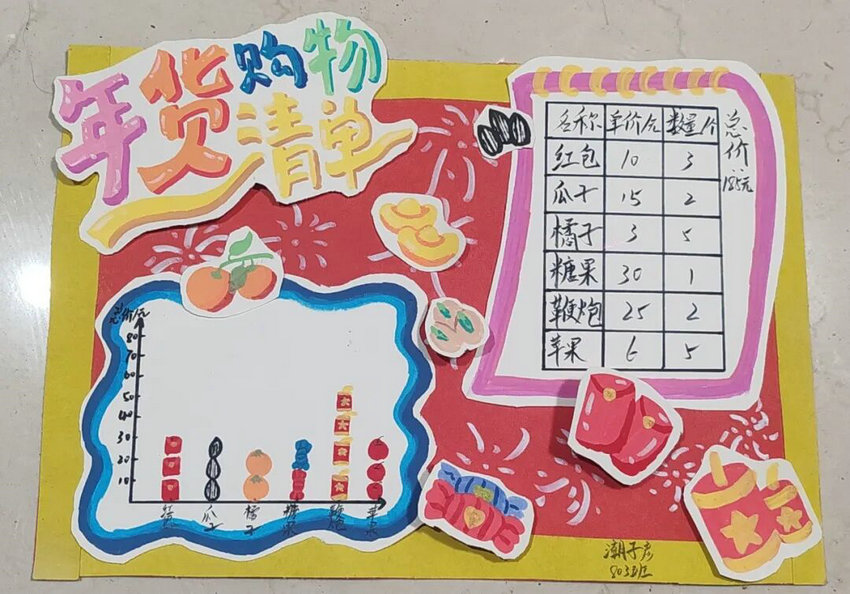 年货购物
清单
名称 单价/元 数量/个
红包 10 3
瓜子 15 2
橘子 3 5
糖果 30 1
鞭炮 25 2
苹果 6 5
总价:185元
总价/元
80
70
60
50
40
30
20
10
红包 瓜子 橘子 糖果 鞭炮 苹果
803班